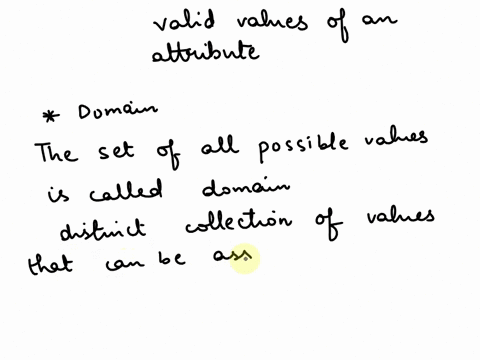 valid values of an
attribute
* Domain
The set of all possible values
is called domain
distinct collection of values
that can be ass